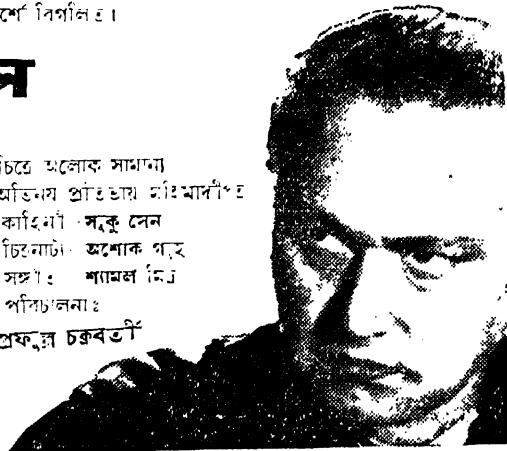 র্শে বিগলিত।
ন
চিত্রে অলোক সামান্য
অভিনয় প্রতিভায় মহিমাদীপ্ত
কাহিনী সুকু সেন
চিত্রনাট্য অশোক গুহ
সঙ্গীত: শ্যামল মিত্র
পরিচালনাঃ
প্রফুল্ল চক্রবর্তী